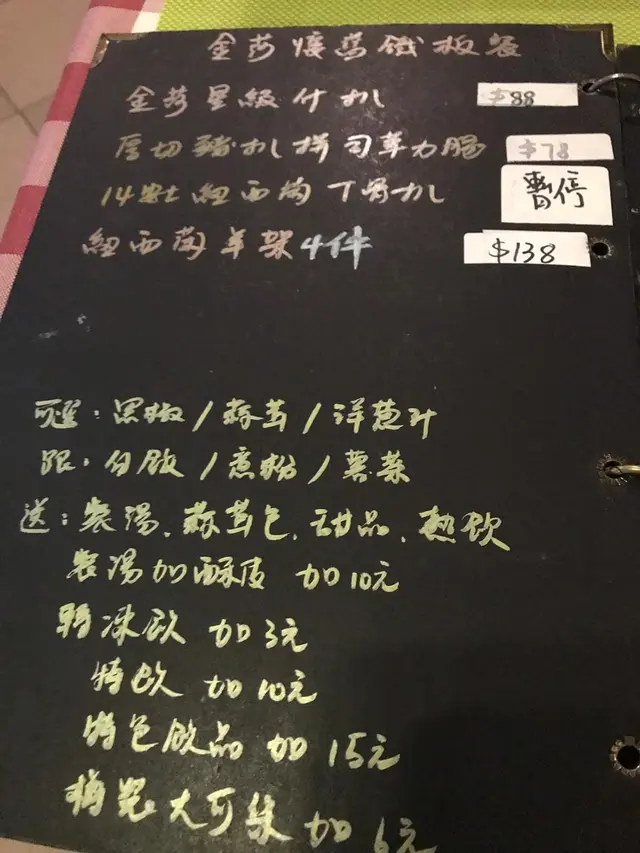 金莎懷舊鐵板餐
金莎星級什扒 $88
厚切豬扒拼司華力腸 $78
14安士紐西蘭丁骨扒 暫停
紐西蘭羊架4件 $138
可選：黑椒/蒜茸/洋葱汁
跟：白飯/意粉/薯菜
送：餐湯、蒜茸包、甜品、熱飲
餐湯加酥皮 加10元
轉凍飲 加3元
特飲 加10元
特色飲品 加15元
大可樂 加6元